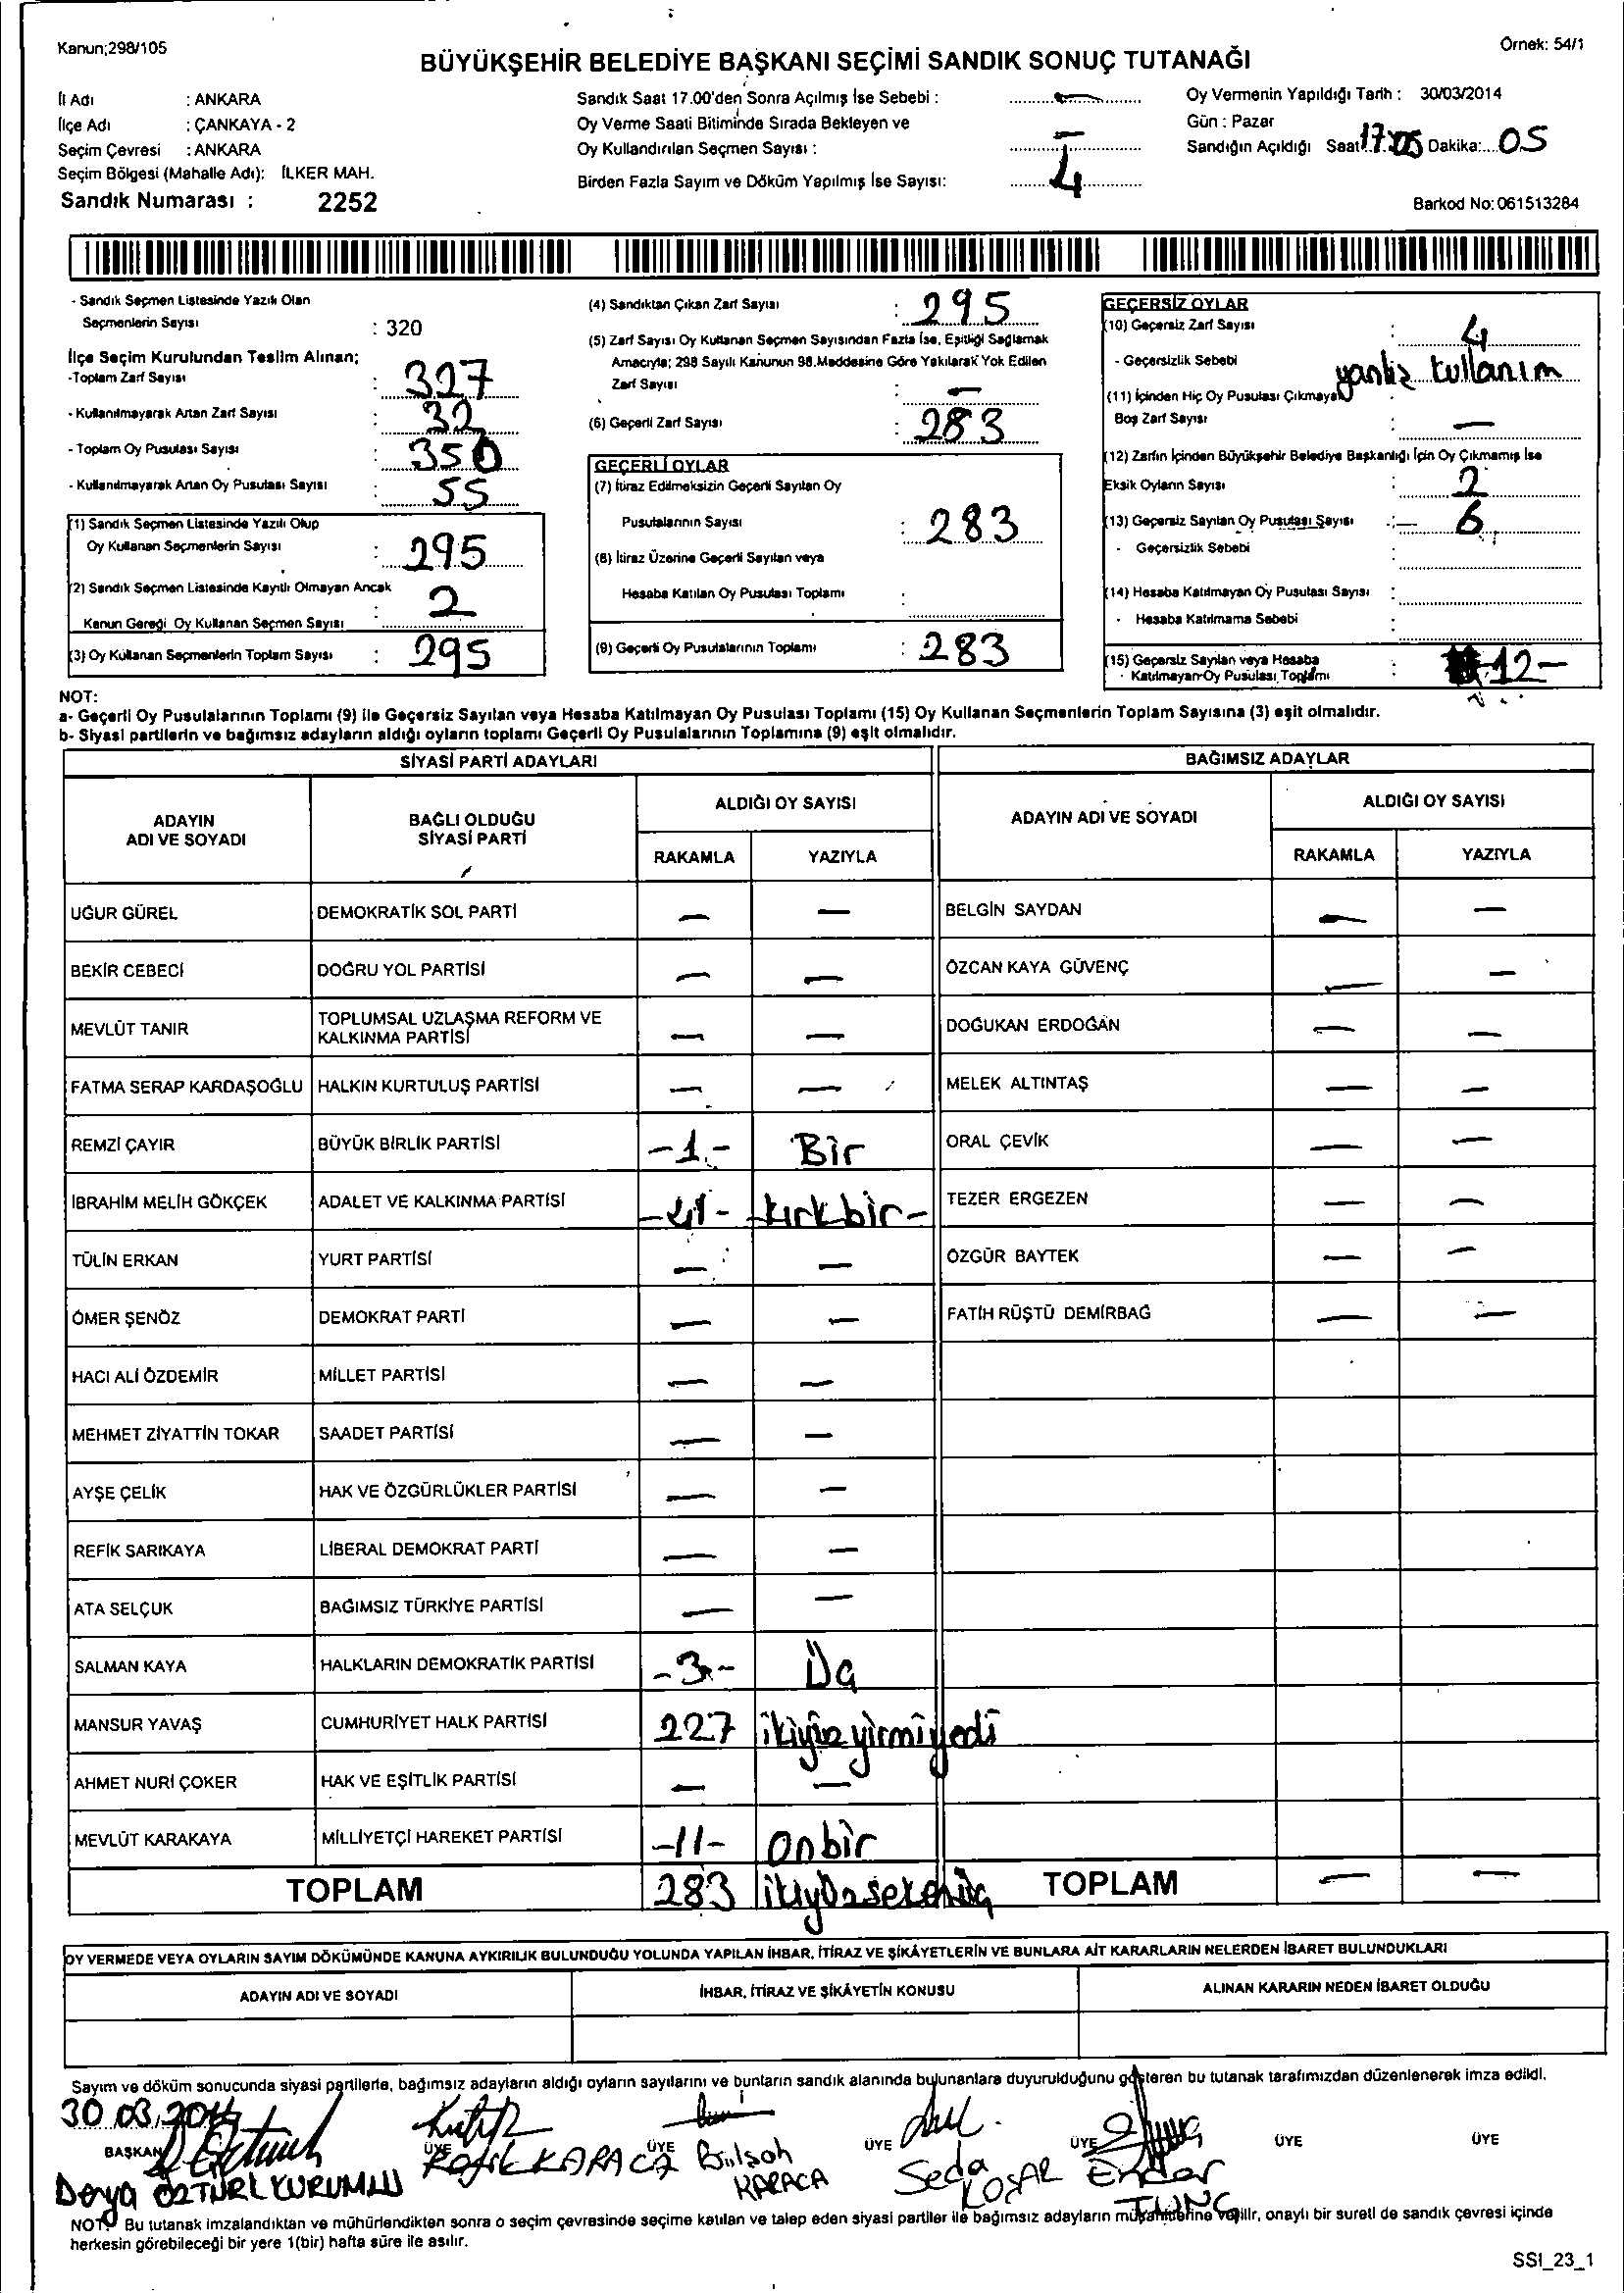 Kanun;298/105
Örnek: 54/1
BÜYÜKŞEHİR BELEDİYE BAŞKANI SEÇİMİ SANDIK SONUÇ TUTANAĞI
İl Adı : ANKARA
İlçe Adı : ÇANKAYA - 2
Seçim Çevresi : ANKARA
Seçim Bölgesi (Mahalle Adı): İLKER MAH.
Sandık Numarası : 2252
Sandık Saat 17.00'den Sonra Açılmış İse Sebebi : —
Oy Verme Saati Bitiminde Sırada Bekleyen ve
Oy Kullandırılan Seçmen Sayısı : —
Birden Fazla Sayım ve Döküm Yapılmış İse Sayısı: 4
Oy Vermenin Yapıldığı Tarih : 30/03/2014
Gün : Pazar
Sandığın Açıldığı Saat: 17:05 Dakika:....05
Barkod No:061513284
- Sandık Seçmen Listesinde Yazılı Olan
Seçmenlerin Sayısı : 320
İlçe Seçim Kurulundan Teslim Alınan;
-Toplam Zarf Sayısı : 327
- Kullanılmayarak Artan Zarf Sayısı : 32
- Toplam Oy Pusulası Sayısı : 350
- Kullanılmayarak Artan Oy Pusulası Sayısı : 55
(1) Sandık Seçmen Listesinde Yazılı Olup
Oy Kullanan Seçmenlerin Sayısı : 295
(2) Sandık Seçmen Listesinde Kayıtlı Olmayan Ancak
Kanun Gereği Oy Kullanan Seçmen Sayısı : 2
(3) Oy Kullanan Seçmenlerin Toplam Sayısı : 295
(4) Sandıktan Çıkan Zarf Sayısı : 295
(5) Zarf Sayısı Oy Kullanan Seçmen Sayısından Fazla İse, Eşitliği Sağlamak
Amacıyla; 298 Sayılı Kanunun 98.Maddesine Göre Yakılarak Yok Edilen
Zarf Sayısı : —
(6) Geçerli Zarf Sayısı : 283
GEÇERLİ OYLAR
(7) İtiraz Edilmeksizin Geçerli Sayılan Oy
Pusulalarının Sayısı : 283
(8) İtiraz Üzerine Geçerli Sayılan veya
Hesaba Katılan Oy Pusulası Toplamı :
(9) Geçerli Oy Pusulalarının Toplamı : 283
GEÇERSİZ OYLAR
(10) Geçersiz Zarf Sayısı : 4
- Geçersizlik Sebebi : yanlız kullanım
(11) İçinden Hiç Oy Pusulası Çıkmayan
Boş Zarf Sayısı : —
(12) Zarfın İçinden Büyükşehir Belediye Başkanlığı İçin Oy Çıkmamış İse
Eksik Oyların Sayısı : 2
(13) Geçersiz Sayılan Oy Pusulası Sayısı : 6
- Geçersizlik Sebebi :
(14) Hesaba Katılmayan Oy Pusulası Sayısı :
- Hesaba Katılmama Sebebi :
(15) Geçersiz Sayılan veya Hesaba
Katılmayan Oy Pusulası Toplamı : 12-
NOT:
a- Geçerli Oy Pusulalarının Toplamı (9) ile Geçersiz Sayılan veya Hesaba Katılmayan Oy Pusulası Toplamı (15) Oy Kullanan Seçmenlerin Toplam Sayısına (3) eşit olmalıdır.
b- Siyasi partilerin ve bağımsız adayların aldığı oyların toplamı Geçerli Oy Pusulalarının Toplamına (9) eşit olmalıdır.
SİYASİ PARTİ ADAYLARI
BAĞIMSIZ ADAYLAR
ADAYIN ADI VE SOYADI
BAĞLI OLDUĞU SİYASİ PARTİ
ALDIĞI OY SAYISI
RAKAMLA YAZIYLA
ADAYIN ADI VE SOYADI
ALDIĞI OY SAYISI
RAKAMLA YAZIYLA
UĞUR GÜREL DEMOKRATİK SOL PARTİ — — BELGİN SAYDAN — —
BEKİR CEBECİ DOĞRU YOL PARTİSİ — — ÖZCAN KAYA GÜVENÇ — —
MEVLÜT TANIR TOPLUMSAL UZLAŞMA REFORM VE KALKINMA PARTİSİ — — DOĞUKAN ERDOĞAN — —
FATMA SERAP KARDAŞOĞLU HALKIN KURTULUŞ PARTİSİ — — MELEK ALTINTAŞ — —
REMZİ ÇAYIR BÜYÜK BİRLİK PARTİSİ -1- Bir ORAL ÇEVİK — —
İBRAHİM MELİH GÖKÇEK ADALET VE KALKINMA PARTİSİ -41- -kırkbir- TEZER ERGEZEN — —
TÜLİN ERKAN YURT PARTİSİ — — ÖZGÜR BAYTEK — —
ÖMER ŞENÖZ DEMOKRAT PARTİ — — FATİH RÜŞTÜ DEMİRBAĞ — —
HACI ALİ ÖZDEMİR MİLLET PARTİSİ — —
MEHMET ZİYATTİN TOKAR SAADET PARTİSİ — —
AYŞE ÇELİK HAK VE ÖZGÜRLÜKLER PARTİSİ — —
REFİK SARIKAYA LİBERAL DEMOKRAT PARTİ — —
ATA SELÇUK BAĞIMSIZ TÜRKİYE PARTİSİ — —
SALMAN KAYA HALKLARIN DEMOKRATİK PARTİSİ -3- Üç
MANSUR YAVAŞ CUMHURİYET HALK PARTİSİ 227 ikiyüzyirmiyedi
AHMET NURİ ÇOKER HAK VE EŞİTLİK PARTİSİ — —
MEVLÜT KARAKAYA MİLLİYETÇİ HAREKET PARTİSİ -11- onbir
TOPLAM 283 ikiyüzseksenüç TOPLAM — —
OY VERMEDE VEYA OYLARIN SAYIM DÖKÜMÜNDE KANUNA AYKIRILIK BULUNDUĞU YOLUNDA YAPILAN İHBAR, İTİRAZ VE ŞİKÂYETLERİN VE BUNLARA AİT KARARLARIN NELERDEN İBARET BULUNDUKLARI
ADAYIN ADI VE SOYADI İHBAR, İTİRAZ VE ŞİKÂYETİN KONUSU ALINAN KARARIN NEDEN İBARET OLDUĞU
Sayım ve döküm sonucunda siyasi partilerle, bağımsız adayların aldığı oyların sayılarını ve bunların sandık alanında bulunanlara duyurulduğunu gösteren bu tutanak tarafımızdan düzenlenerek imza edildi.
30.03.2014
BAŞKAN ÜYE ÜYE ÜYE ÜYE ÜYE ÜYE
Derya ÖZTÜRK KURUMLU Refik KARACA KARACA Seda KOŞAR Ender TUNÇ
NOT: Bu tutanak imzalandıktan ve mühürlendikten sonra o seçim çevresinde seçime katılan ve talep eden siyasi partiler ile bağımsız adayların müşahitlerine verilir, onaylı bir sureti de sandık çevresi içinde
herkesin görebileceği bir yere 1(bir) hafta süre ile asılır.
SSI_23_1